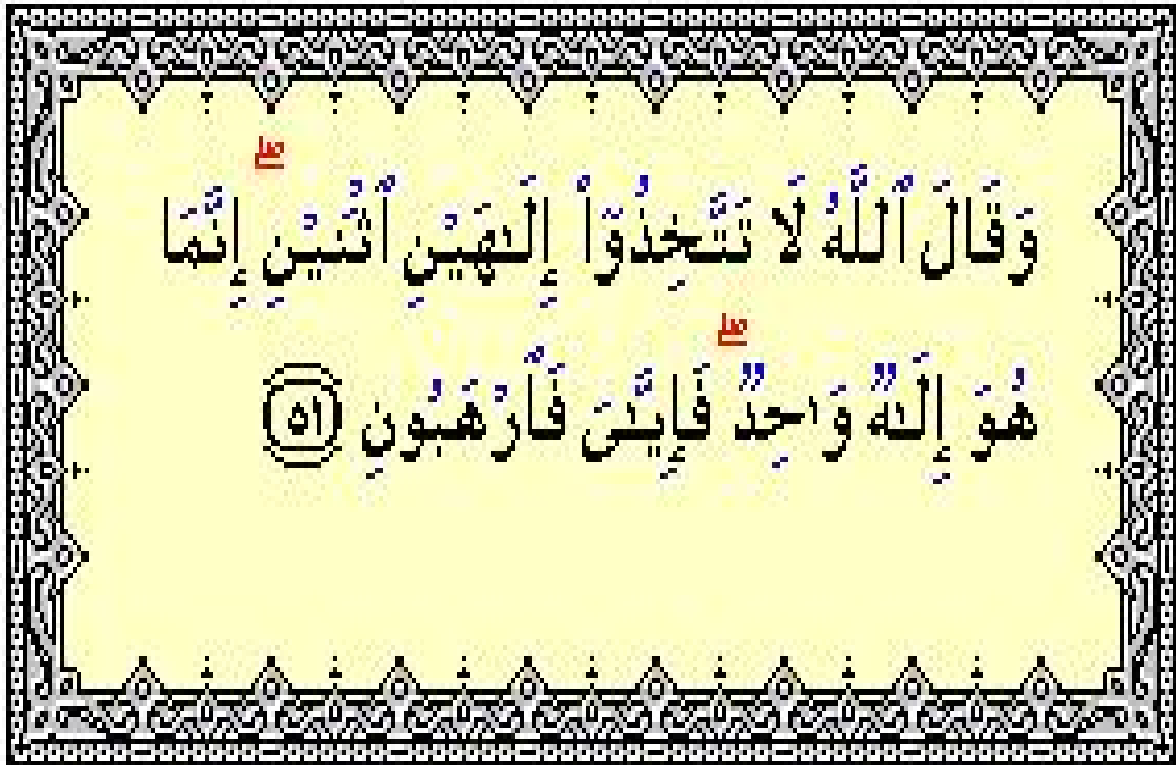 وَقَالَ ٱللَّهُ لَا تَتَّخِذُوٓا۟ إِلَـٰهَيْنِ ٱثْنَيْنِ ۖ إِنَّمَا
هُوَ إِلَـٰهٌ وَٰحِدٌ ۖ فَإِيَّـٰىَ فَٱرْهَبُونِ ٥١